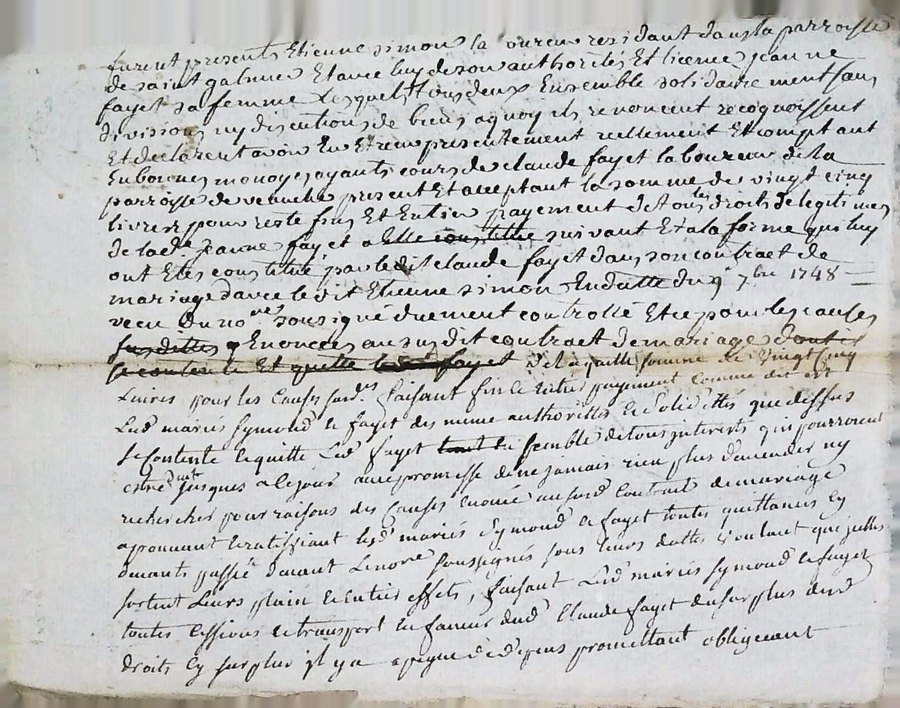 furent presents Etienne simon la oureur residant dans la parroisse
de saint galmier Et avec luy de son authorité Et licence jeanne
fayet sa femme Lesquels tous deux Ensemble solidairement sans
divission ny discutions de biens a quoy ils renoncent recognoissent
Et declarent avoir Eu Et reçu presentement reellement Et comptant
En bonnes monoyes ayants cours de claude fayet laboureur de la
parroisse de veauche present Et aceptant la somme de vingt cinq
livres pour reste fins Et Entier payement de tous les droits de legitimes
de lad.e jeanne fayet a Elle constitué suivant Et a la forme qui luy
ont Etés constitué par ledit claude fayet dans son contract de
mariage d'avec ledit Etienne simon En datte du 9e 7bre 1748
recu Du no.re soussigné duement controllé Et ce pour les causes
susdittes Enoncées au susdit contract de mariage dont il
se contente Et quitte fayet De laquelle somme de vingt cinq
Livres pour les Causes susd.es faisant fin Et Entier payement comme dit est
Lesd mariés symond Et fayet des meme authorittés Et solidittés que dessus
se Contente Et quitte Led fayet tout Ensemble de tous interets qui pourroient
estre dus jusques a ce jour avec promesse de ne jamais rien plus demender ny
rechercher pour raisons des Causes Enoncé au susd Contract de mariage
aprouvant Et ratiffiant lesd mariés symond Et fayet toutes quittances cy
devants passée devant Le no.re soussignés sous leurs dattes voulant que
sortent Leurs plain Et Entier effets, faisant Lesd mariés symond Et fayet
toutes cessions Et transport En faveur dud Claude fayet du surplus desd
droits sy surplus il y a a peyne de depens promettant obligeant